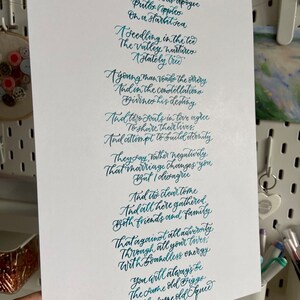 On a starlit sea
A seedling in the lee
The valley nurtures
A stately tree
A young man reads the
And in the constellations
Divines his destiny
And two souls in love agree
To share their lives
And attempt to build eternity
They say, rather negatively
That marriage changes you
But I disagree
And its clear to me
And all here gathered
Both friends and family
That against all adversity
Through all your lives,
With boundless energy
You will always be
The same old
The same old